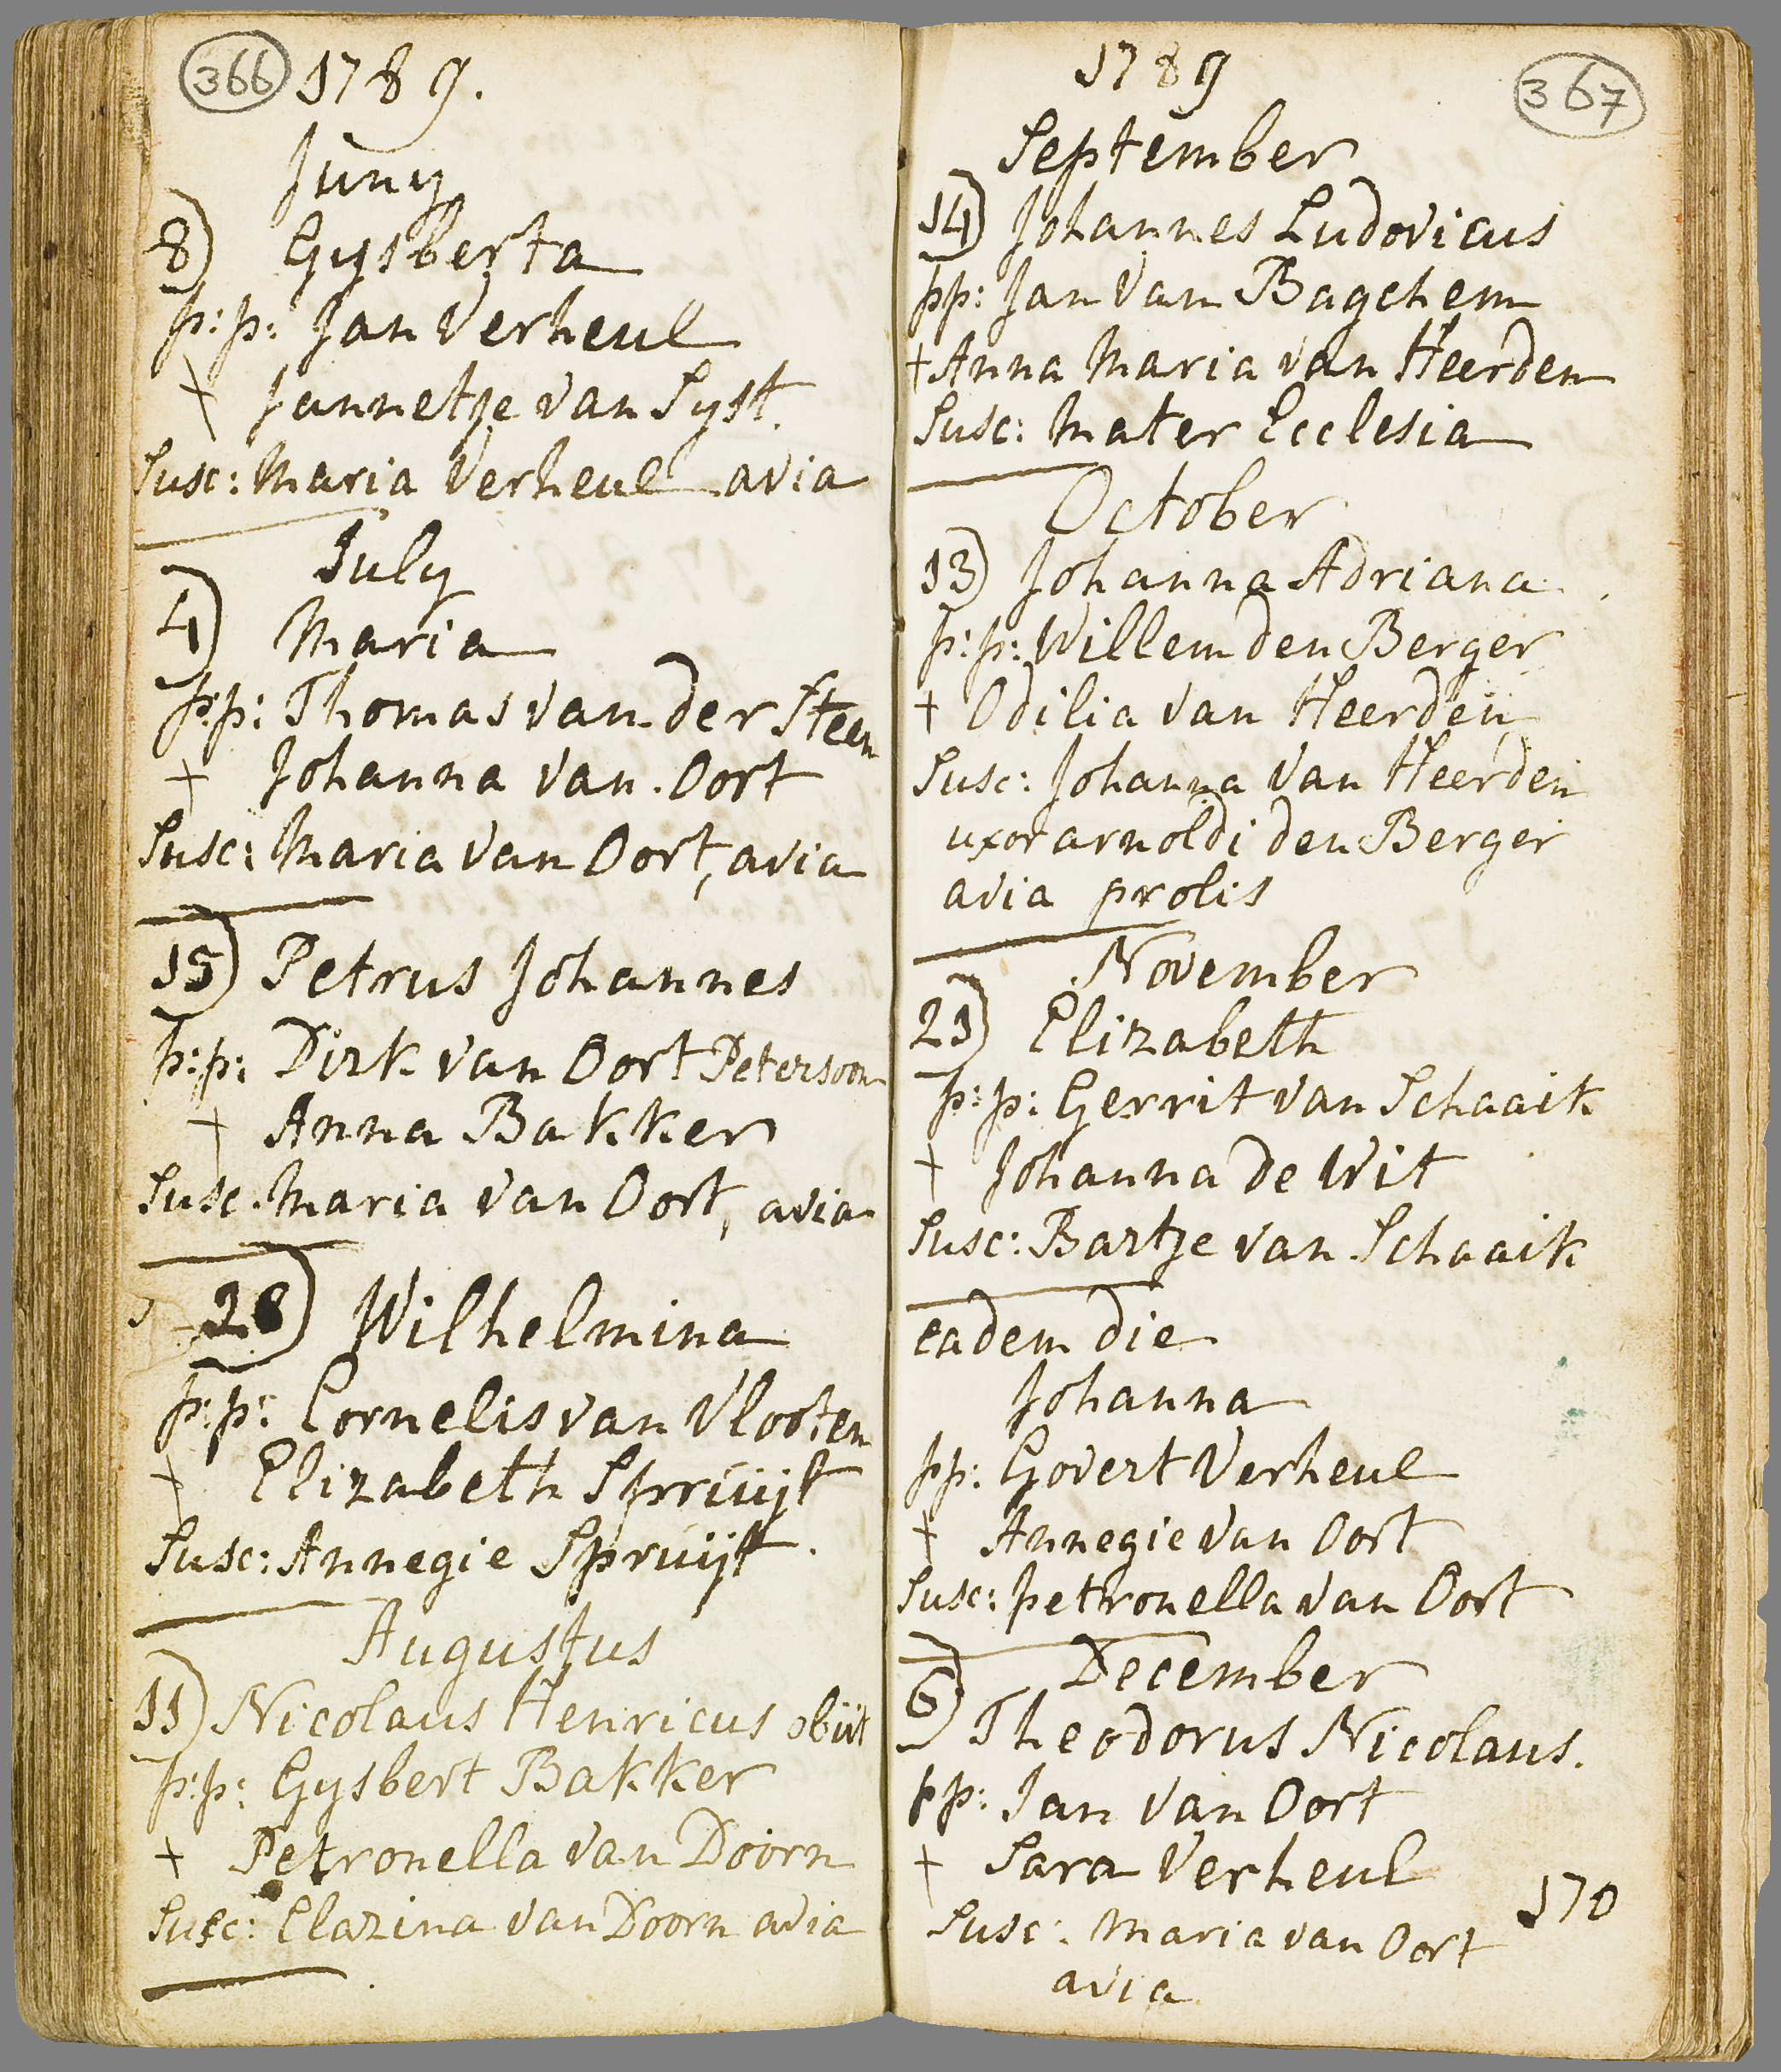 366 1789.
Juny
8) Gysberta
p:p: Jan Verheul
+ Jannetje van Syst.
Susc: Maria Verheul avia
July
4) Maria
p:p: Thomas van der Steen
+ Johanna van Oort
Susc: Maria van Oort, avia
15) Petrus Johannes
p:p: Dirk van Oort Petersoon
+ Anna Bakker
Susc. Maria van Oort, avia
28) Wilhelmina
p:p: Cornelis van Vlooten
+ Elizabeth Spruijt
Susc: Annegie Spruijt.
Augustus
11) Nicolaus Henricus obiit
p:p: Gysbert Bakker
+ Petronella van Doorn
Susc: Clazina van Doorn avia
1789 367
September
14) Johannes Ludovicus
pp: Jan Van Bagchem
+ Anna Maria van Heerden
Susc: Mater Ecclesia
October
13) Johanna Adriana
p:p: Willem den Berger
+ Odilia van Heerden
Susc: Johanna van Heerden
uxor arnoldi den Berger
avia prolis
November
21) Elizabeth
p:p: Gerrit van Schaaik
+ Johanna de Wit
Susc: Bartje van Schaaik
eadem die
Johanna
pp: Govert Verheul
+ Annegie van Oort
Susc: petronella van Oort
December
6) Theodorus Nicolaus.
pp: Jan van Oort
+ Sara Verheul
Susc: Maria van Oort 170
avia